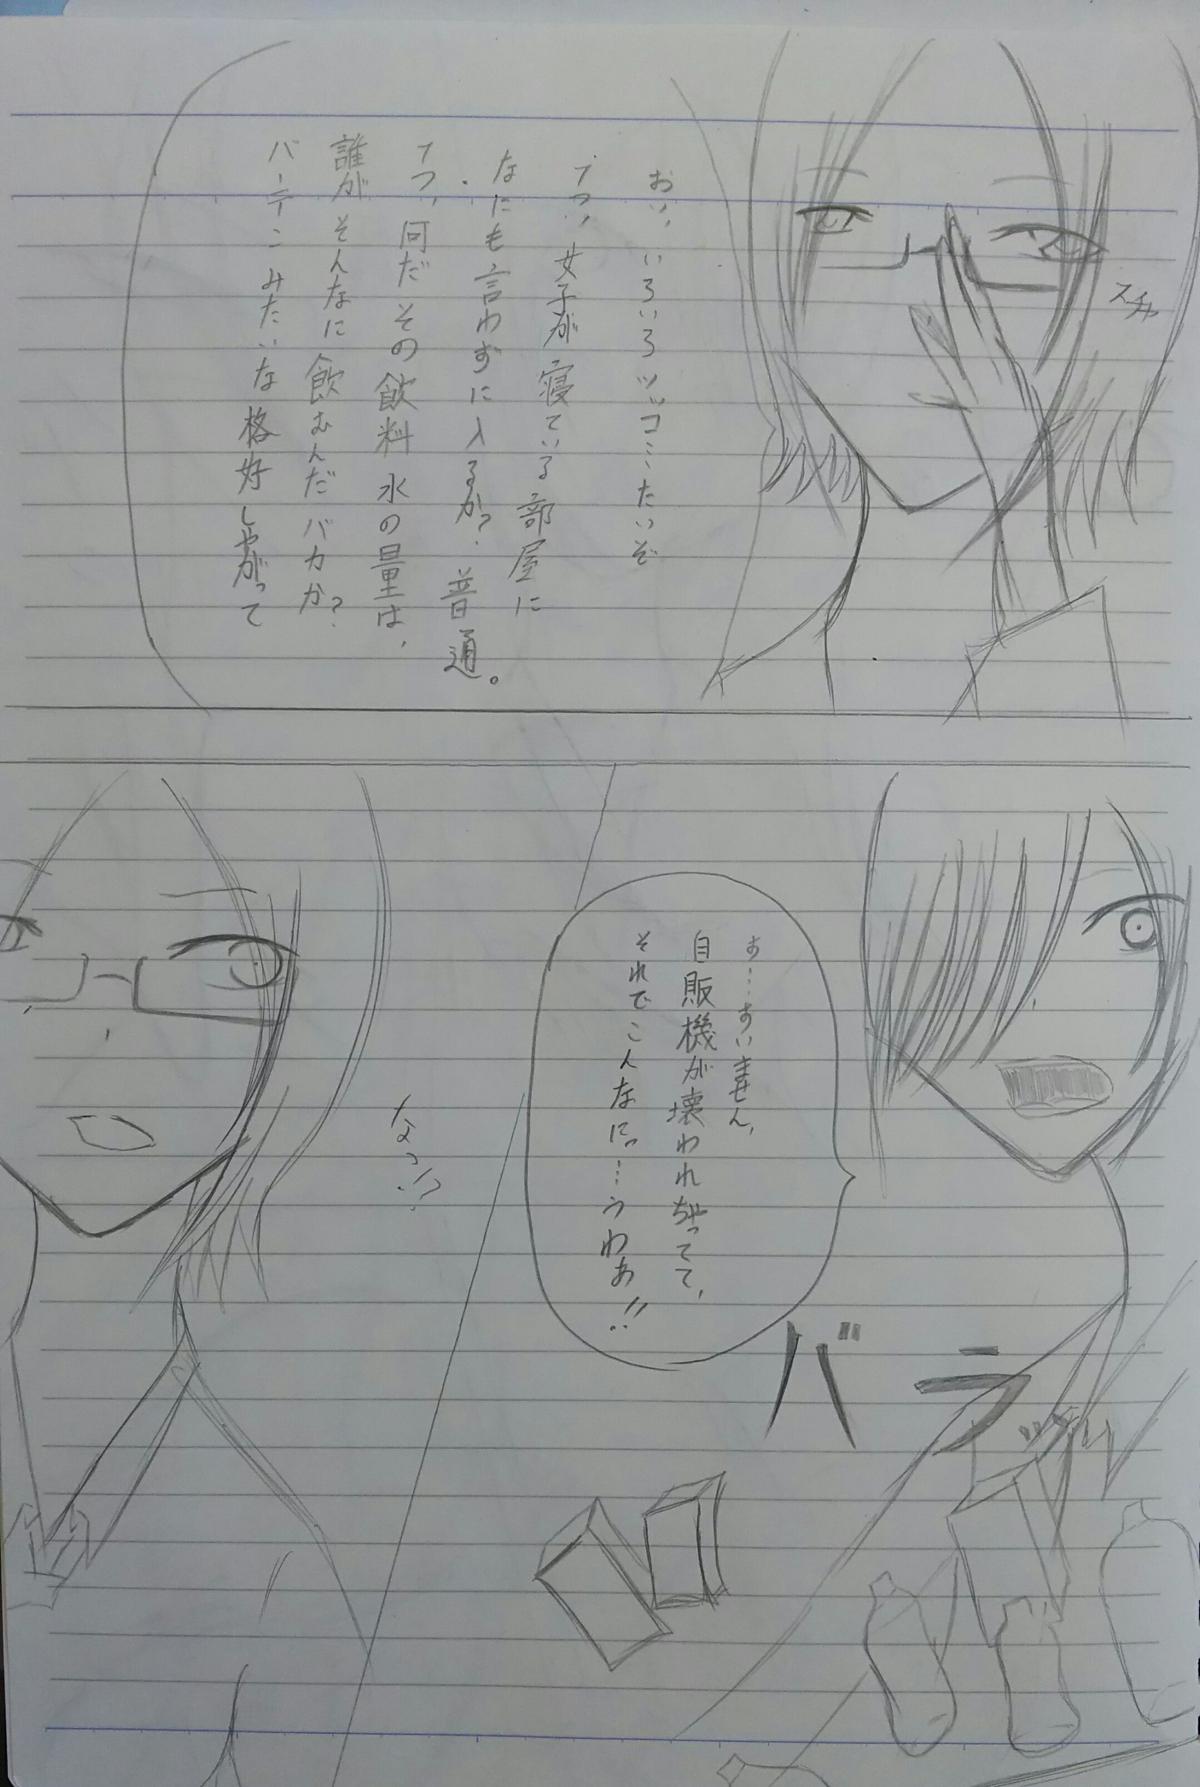 おい、いろいろツッコミたいぞ
1つ、女子が寝ている部屋に
なにも言わずに入るか?普通。
・1つ、何だその飲料水の量は、
誰がそんなに飲むんだバカか?
バーテンみたいな格好しやがって
スチャ
す…すいません、
自販機が壊われちゃってて、
それでこんなにっ…うわあ!!
バラ
なっ!?